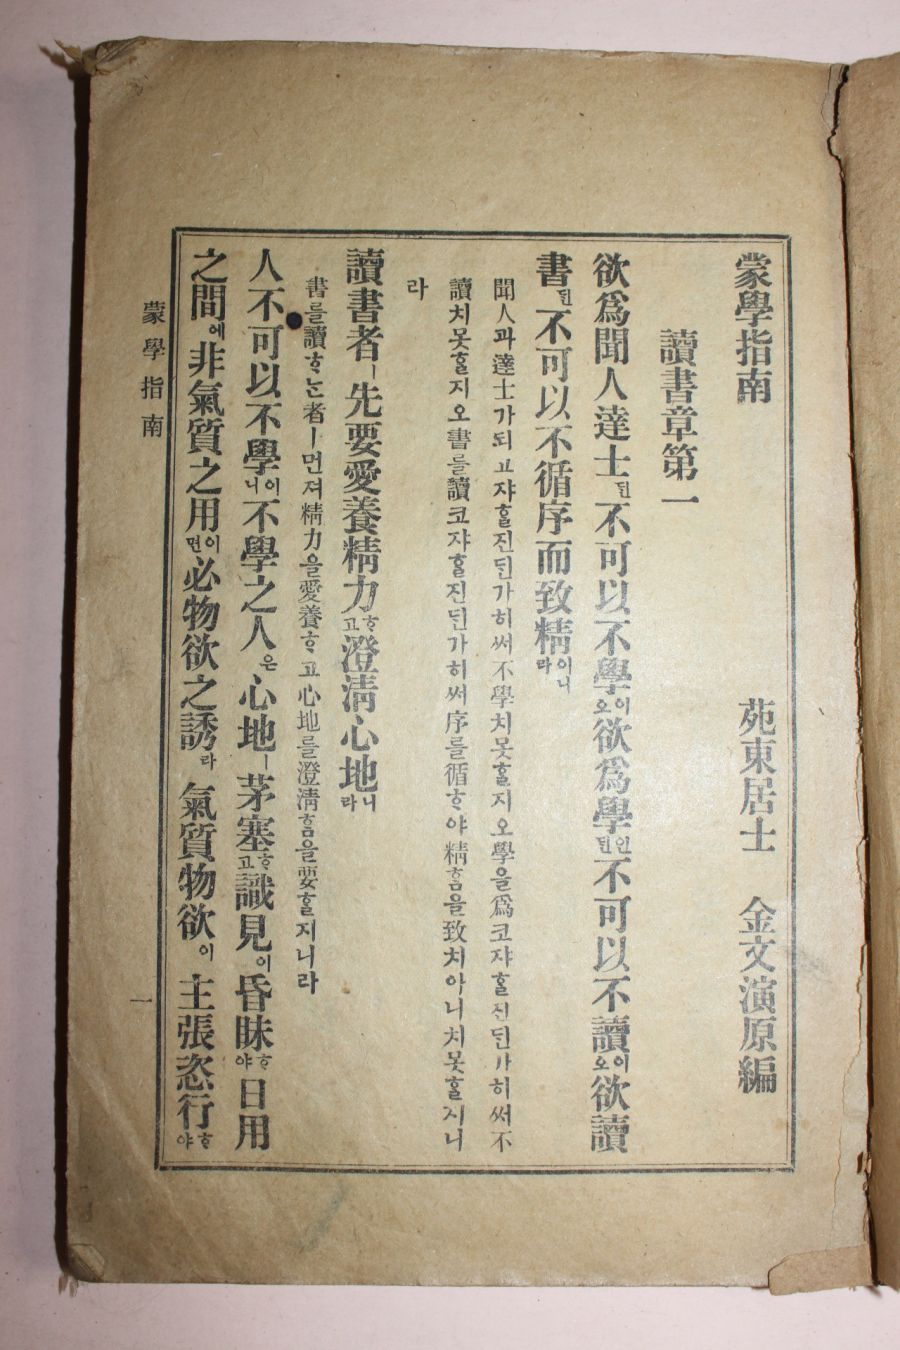 蒙學指南
苑東居士 金文演原編
讀書章第一
欲爲聞人達士ᄃᆡᆫ不可以不學이오欲爲學인ᄃᆡᆫ不可以不讀이오欲讀
書ᄃᆡᆫ不可以不循序而致精이니라
聞人과達士가되고쟈ᄒᆞᆯ진ᄃᆡᆫ가히써不學치못ᄒᆞᆯ지오學을爲코쟈ᄒᆞᆯ진ᄃᆡᆫ가히써不
讀치못ᄒᆞᆯ지오書를讀코쟈ᄒᆞᆯ진ᄃᆡᆫ가히써序를循ᄒᆞ야精ᄒᆞᆷ을致치아니치못ᄒᆞᆯ지니
라
讀書者ㅣ先要愛養精力ᄒᆞ고澄淸心地니라
書를讀ᄒᆞᄂᆞᆫ者ㅣ먼져精力을愛養ᄒᆞ고心地를澄淸ᄒᆞᆷ을要ᄒᆞᆯ지니라
人不可以不學이니不學之人은心地ㅣ茅塞ᄒᆞ고識見이昏眛ᄒᆞ야日用
之間에非氣質之用이면必物欲之誘라氣質物欲이主張恣行ᄒᆞ야
蒙學指南
一